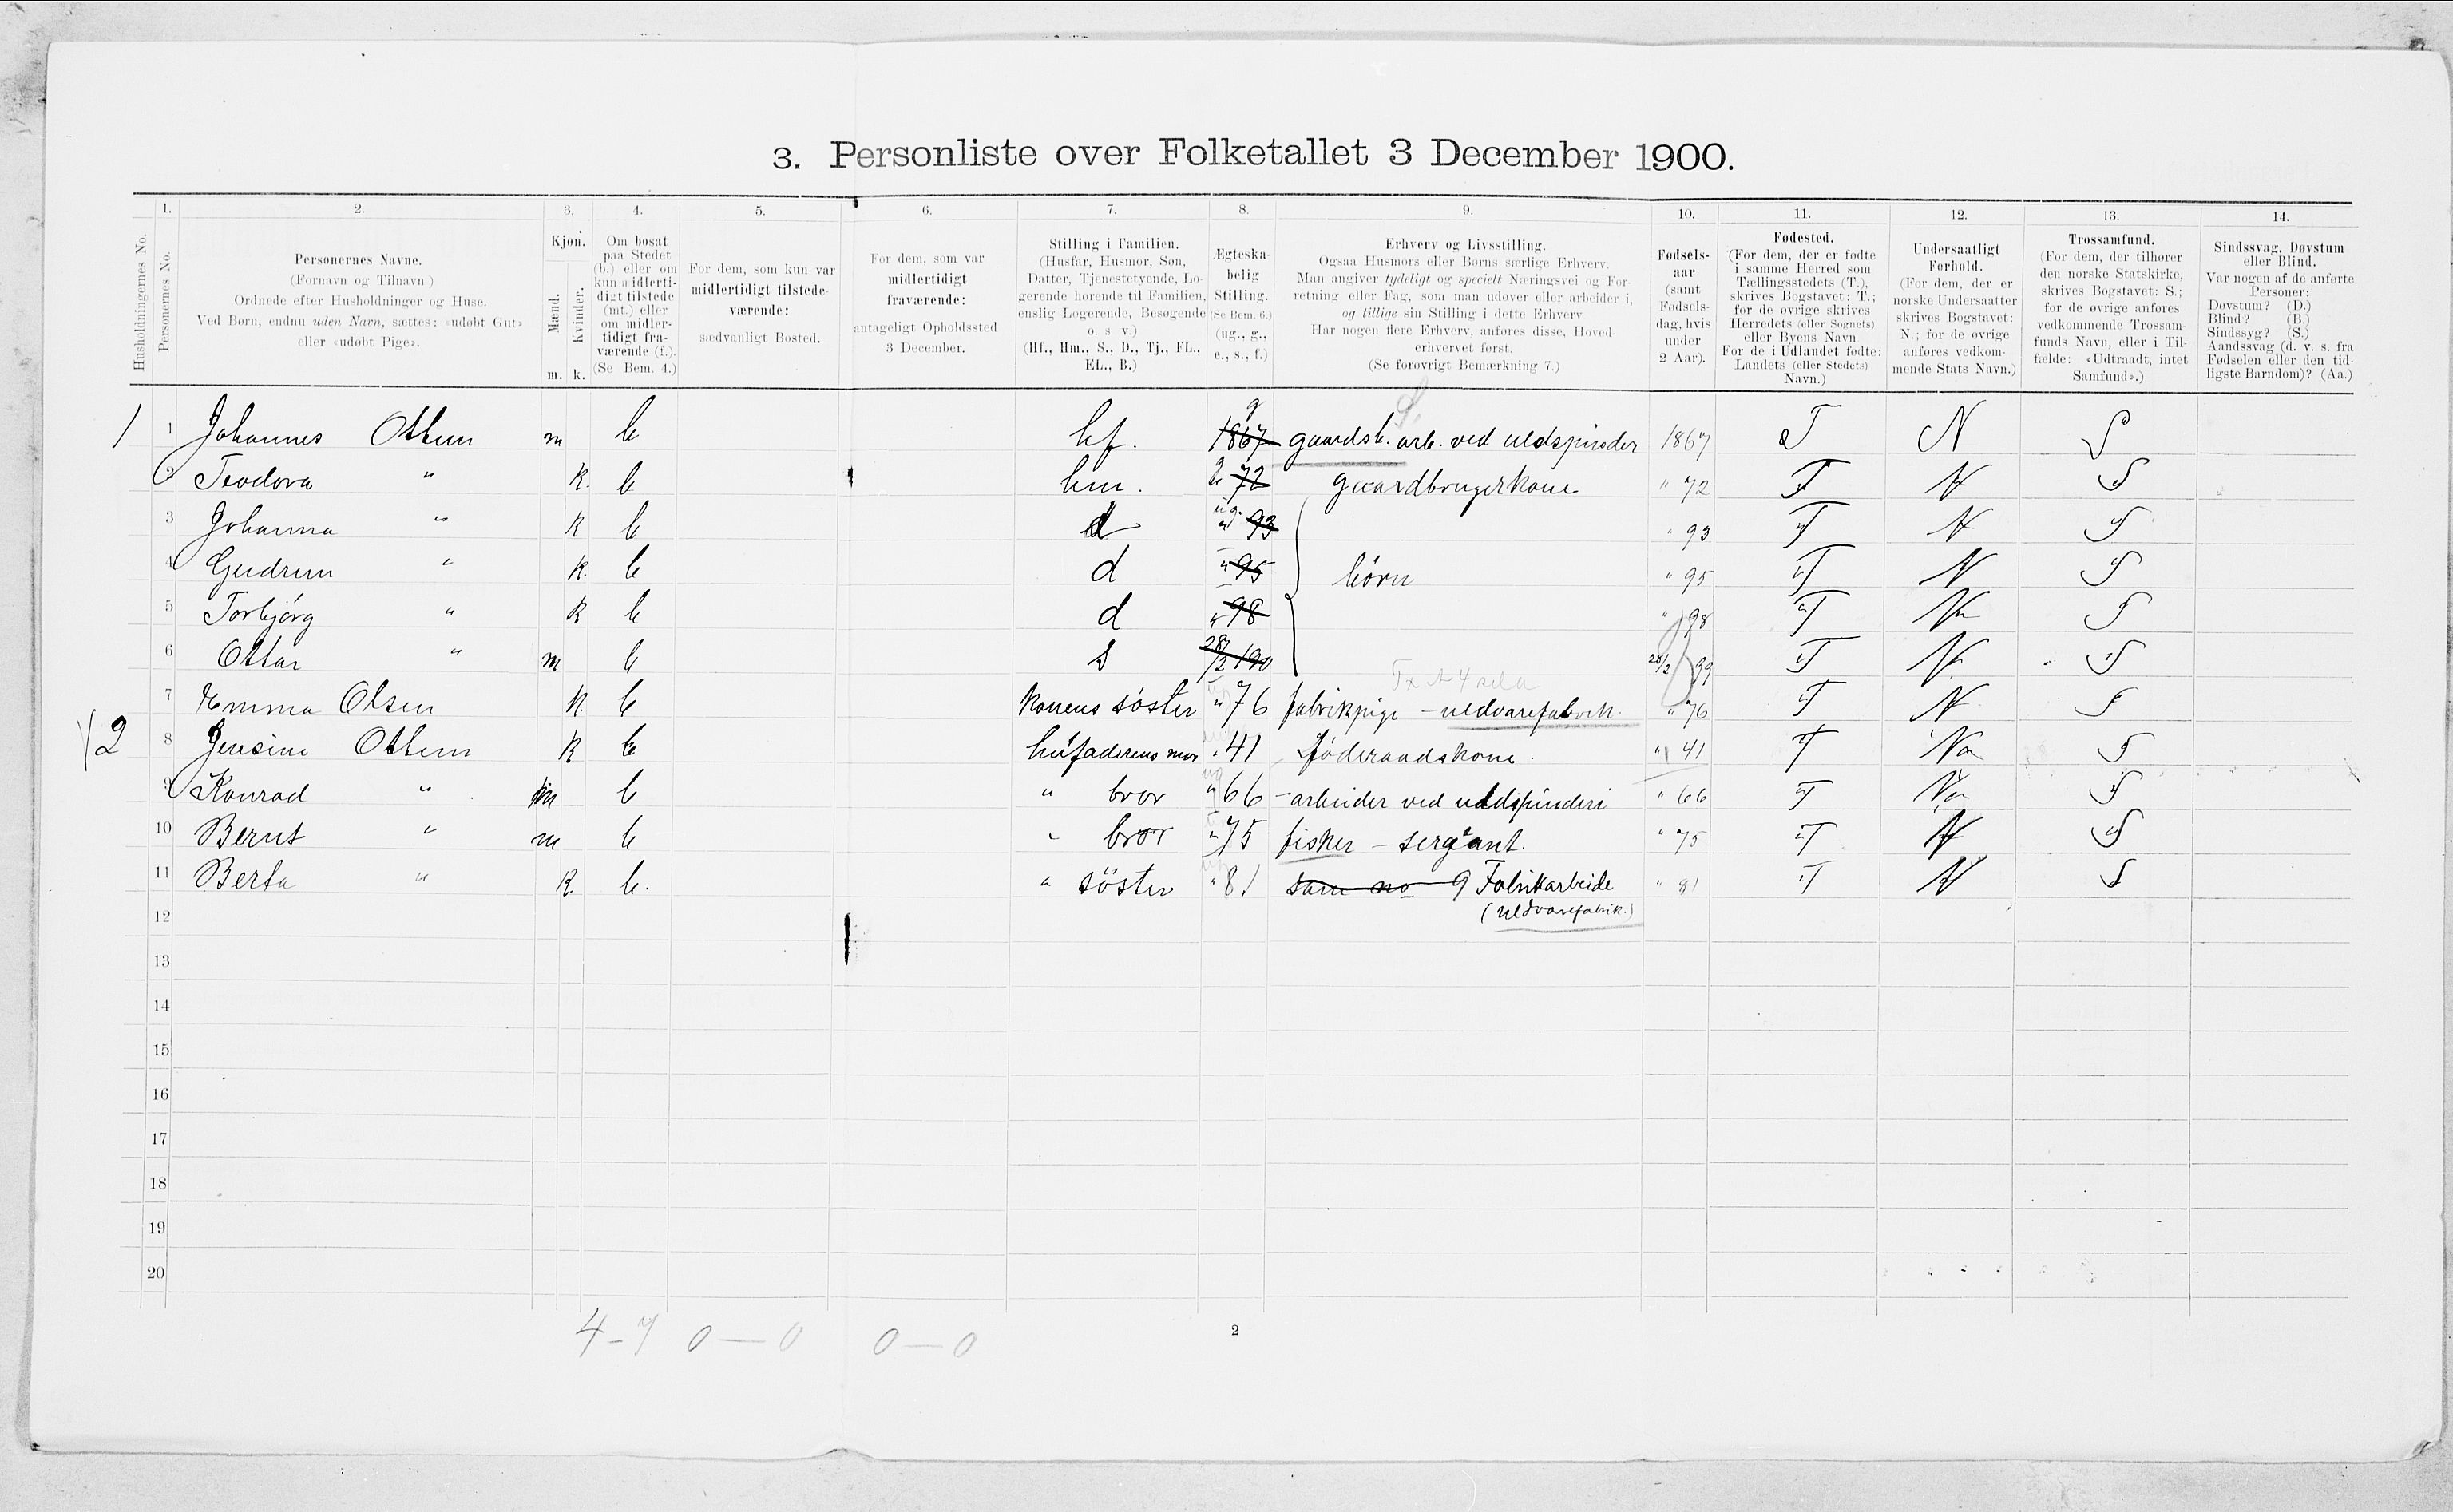 3. Personliste over Folketallet 3 December 1900.
Husholdningernes No.
1.
Personernes No.
2.
Personernes Navne.
(Fornavn og Tilnavn)
Ordnede efter Husholdninger og Huse.
Ved Børn, endnu uden Navn, sættes: «udøbt Gut»
eller «udøbt Pige».
3.
Kjøn.
Mænd.
Kvinder.
m. k.
4.
Om bosat
paa Stedet
(b.) eller om
kun midlerti-
digt tilstede
(mt.) eller
om midler-
tidigt fra-
værende (f.).
(Se Bem. 4.)
5.
For dem, som kun var
midlertidigt tilstede-
værende:
sædvanligt Bosted.
6.
For dem, som var
midlertidigt
fraværende:
antageligt Opholdssted
3 December.
7.
Stilling i Familien.
(Husfar, Husmor, Søn,
Datter, Tjenestetyende, Lo-
gerende hørende til Familien,
enslig Logerende, Besøgende
o. s. v.)
(Hf., Hm., S., D., Tj., FL.,
EL., B.)
8.
Ægteska-
belig
Stilling.
(Se Bem. 6.)
(ug., g.,
e., s., f.)
9.
Erhverv og Livsstilling.
Ogsaa Husmors eller Børns særlige Erhverv.
Man angiver tydeligt og specielt Næringsvei og For-
retning eller Fag, som man udøver eller arbeider i,
og tillige sin Stilling i dette Erhverv
Har nogen flere Erhverv, anføres disse, Hoved-
erhvervet først.
(Se forøvrigt Bemærkning 7.)
10.
Fødsels-
aar
(samt
Fødsels-
dag, hvis
under
2 Aar).
11.
Fødested.
(For dem, der er fødte
i samme Herred som
Tællingsstedets (T.),
skrives Bogstavet: T.;
for de øvrige skrives
Herredets (eller Sognets)
eller Byens Navn
For de i Udlandet fødte:
Landets (eller Stedets)
Navn.)
12.
Undersaatligt
Forhold.
(For dem, der er
norske Undersaatter
skrives Bogstavet:
N.; for de øvrige
anføres vedkom-
mende Stats Navn.)
13.
Trossamfund.
(For dem, der tilhører
den norske Statskirke,
skrives Bogstavet: S.;
for de øvrige anføres
vedkommende Trossam-
funds Navn, eller i Til-
fælde: «Udtraadt, intet
Samfund».)
14.
Sindssvag, Døvstum
eller Blind.
Var nogen af de anførte
Personer:
Døvstum? (D.)
Blind? (B.)
Sindssyg? (S.)
Aandssvag (d. v. s. fra
Fødselen eller den tid-
ligste Barndom)? (Aa.)
1 1 Johannes Ottum m b hf. g 1867 gaardsb. arb. ved uldspinder 1867 T N S
2 Teodora " k. b hm. g 72 gaardbrugerkone " 72 T N S
3 Johanna " k b d ug. " 93 " 93 T N S
4 Gudrun " k. b d " 95 børn " 95 T N S
5 Torbjörg " k b d " 98 " 98 T N S
6 Ottar " m b s 28/2 190 28/2 99 T N S
7 Emma Olsen k. b konens söster " 76 fabrikpige - uldvarefabrik. " 76 T N S
2 8 Jensine Ottum k b husfaderens mor " 41 föderaadskone. " 41 T N S
9 Konrad " m b " bror " 66 - arbeider ved uldspinderi " 66 T N S
10 Bernt " m b " bror " 75 fisker - sergeant. " 75 T N S
11 Berta " k. b. " söster " 81 sam no 9 Fabrikarbeide " 81 T N S
(uldvarefabrik.)
12
13
14
15
16
17
18
19
20
4-7 0-0 0-0
2